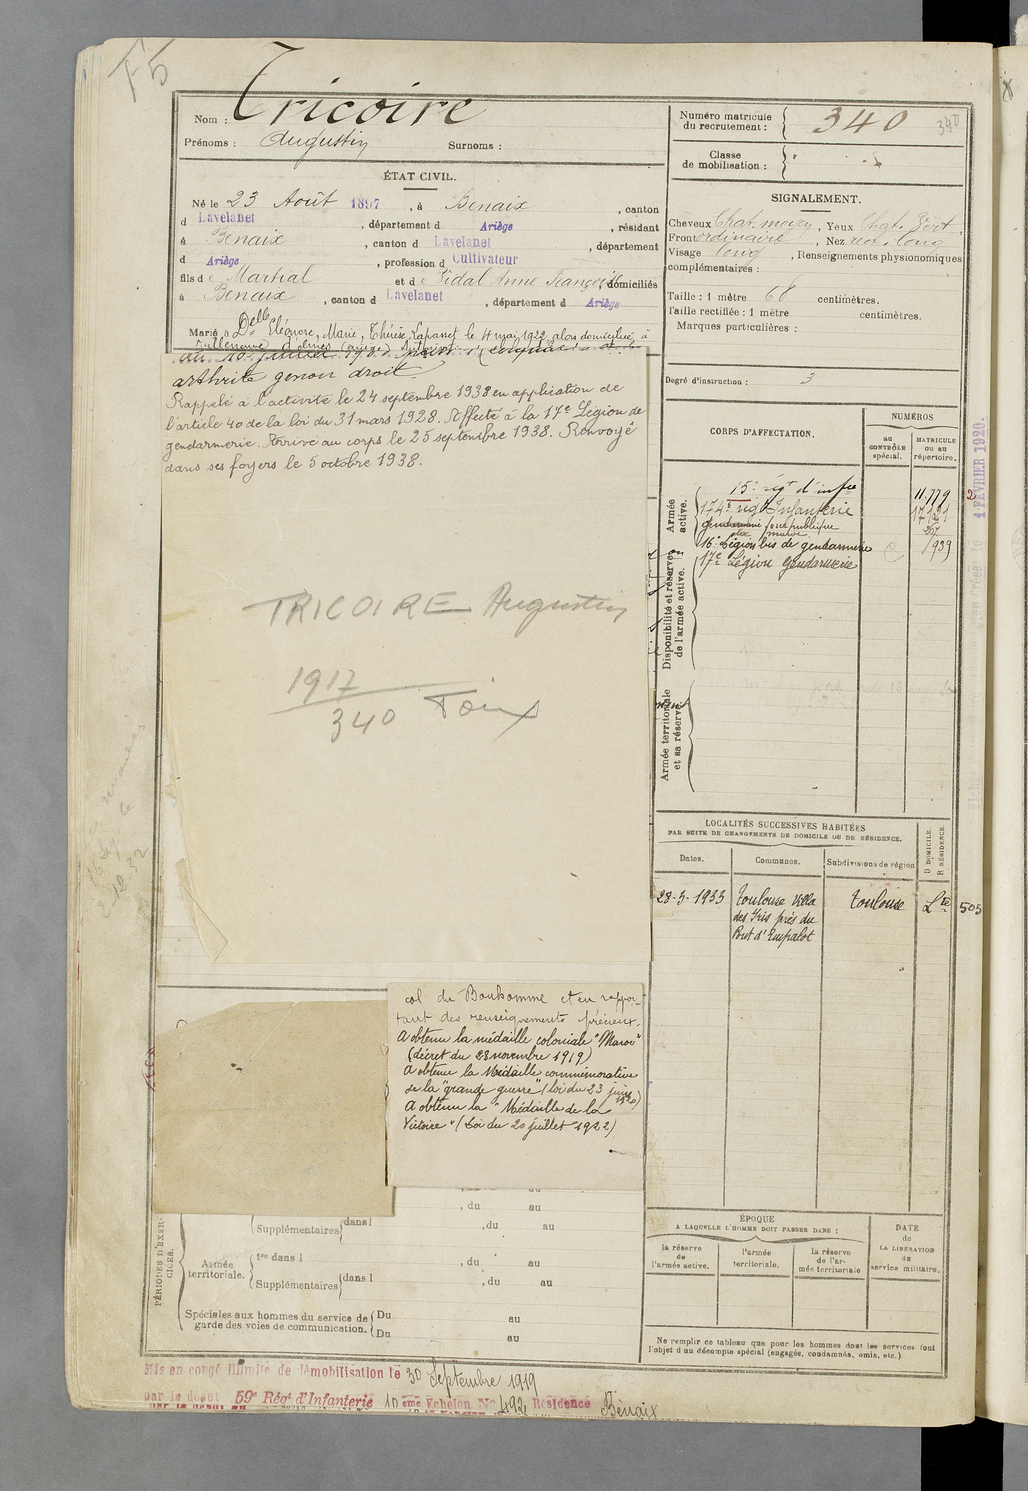 F5
Nom : Tricoire
Prénoms : Augustin Surnoms :
ÉTAT CIVIL.
Né le 23 Août 1897, à Benaix, canton
d Lavelanet, département d Ariège, résidant
à Benaix, canton d Lavelanet, département
d Ariège, profession d Cultivateur
fils de Martial et de Vidal Anne Françoise domiciliés
à Benaix, canton d Lavelanet, département d Ariège
Marié à Delle Eléonore, Marie, Thérèse, Lapasset le 4 mai 1922, alors domiciliée à
Villeneuve d'olmes (Ariège)
au 10 juillet
arthrite genou droit.
Rappelé à l'activité le 24 septembre 1938 en application de
l'article 40 de la loi du 31 mars 1928. Affecté à la 17e Légion de
gendarmerie. Arrivé au corps le 25 septembre 1938. Renvoyé
dans ses foyers le 5 octobre 1938.
TRICOIRE Augustin
1917
340 Foix
col du Bouhomme et en rappor-
tant des renseignements précieux.
A obtenu la médaille coloniale "Maroc"
(décret du 28 novembre 1919)
A obtenu la Médaille commémorative
de la "grande guerre" (loi du 23 juin 1920)
A obtenu la "Médaille de la
Victoire" (Loi du 20 juillet 1922)
PÉRIODES D'EXER-
CICES.
, du au
Supplémentaires dans l , du au
Armée
territoriale.
1re dans l , du au
Supplémentaires dans l , du au
Spéciales aux hommes du service de
garde des voies de communication.
Du au
Du au
Mis en congé illimité de démobilisation le 30 Septembre 1919
par le dépôt 59e Régt d'Infanterie 10 ème Echelon No 492 Résidence Benaix
Numéro matricule
du recrutement : 340
340
Classe
de mobilisation :
SIGNALEMENT.
Cheveux Chat. moyen, Yeux Chat. Vert,
Front ordinaire, Nez rect. long
Visage long, Renseignements physionomiques
complémentaires :
Taille : 1 mètre 68 centimètres.
Taille rectifiée : 1 mètre centimètres.
Marques particulières :
Degré d'instruction : 3
CORPS D'AFFECTATION.
NUMÉROS
au
CONTRÔLE
spécial.
MATRICULE
ou au
répertoire.
Armée
active.
15e régt d'infie 11.779
174e régt Infanterie
gendarmerie force publique
du maroc
16e Légion bis de gendarmerie 1939
17e Légion Gendarmerie
Disponibilité et réserve
de l'armée active.
Armée territoriale
et sa réserve.
4 FÉVRIER 1920.
LOCALITÉS SUCCESSIVES HABITÉES
PAR SUITE DE CHANGEMENTS DE DOMICILE OU DE RÉSIDENCE.
Dates. Communes. Subdivisions de région
D DOMICILE.
R RÉSIDENCE.
28-3-1933 Toulouse Villa Toulouse 505
des Iris près du
Pont d'Empalot
ÉPOQUE
A LAQUELLE L'HOMME DOIT PASSER DANS :
la réserve
de
l'armée active.
l'armée
territoriale.
la réserve
de l'ar-
mée territoriale
DATE
de
LA LIBÉRATION
du
service militaire.
Ne remplir ce tableau que pour les hommes dont les services font
l'objet d'un décompte spécial (engagés, condamnés, omis, etc.).